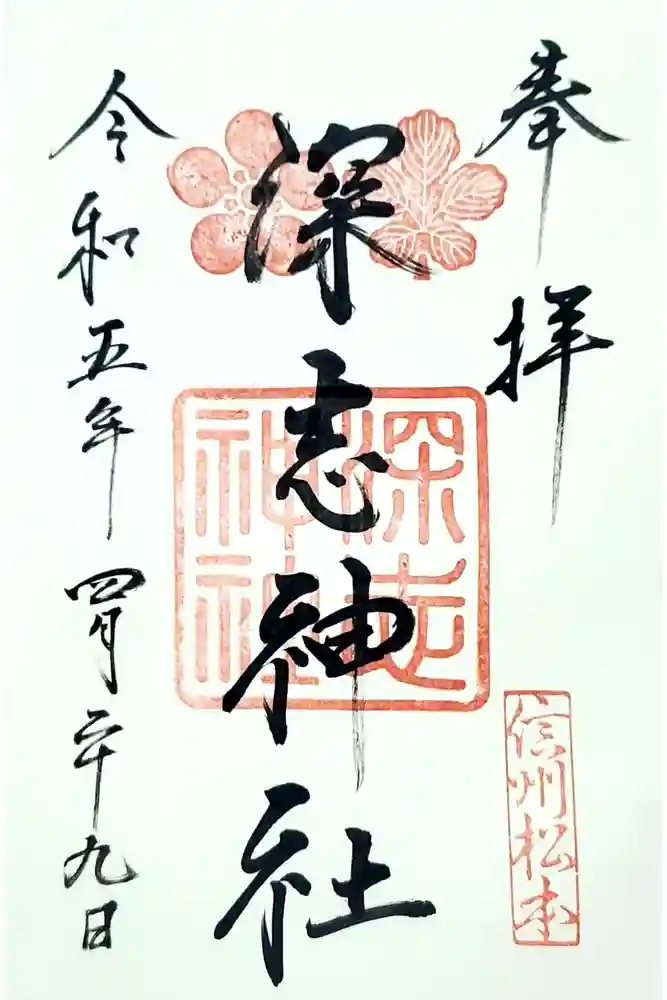 奉拝
信州松本
深志神社
深志神社
令和五年四月二十九日